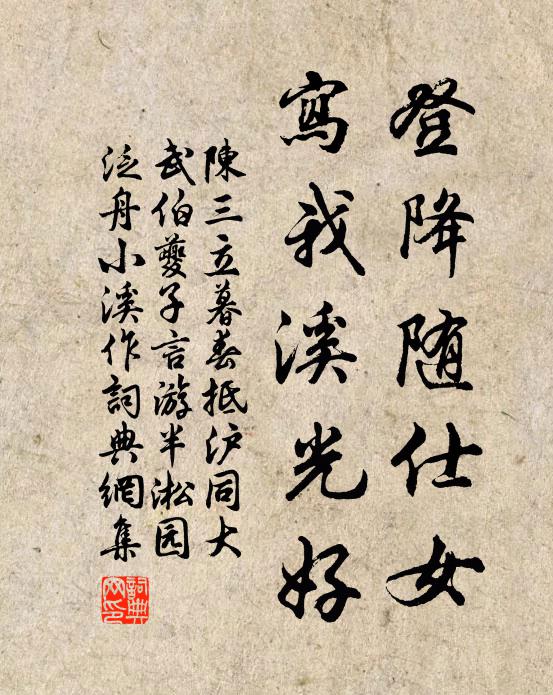 登降随仕女
寫我溪光好
陳三立暮春抵沪同大
武伯夔子言游半淞园
泛舟小溪作詞典網集
詞典網印